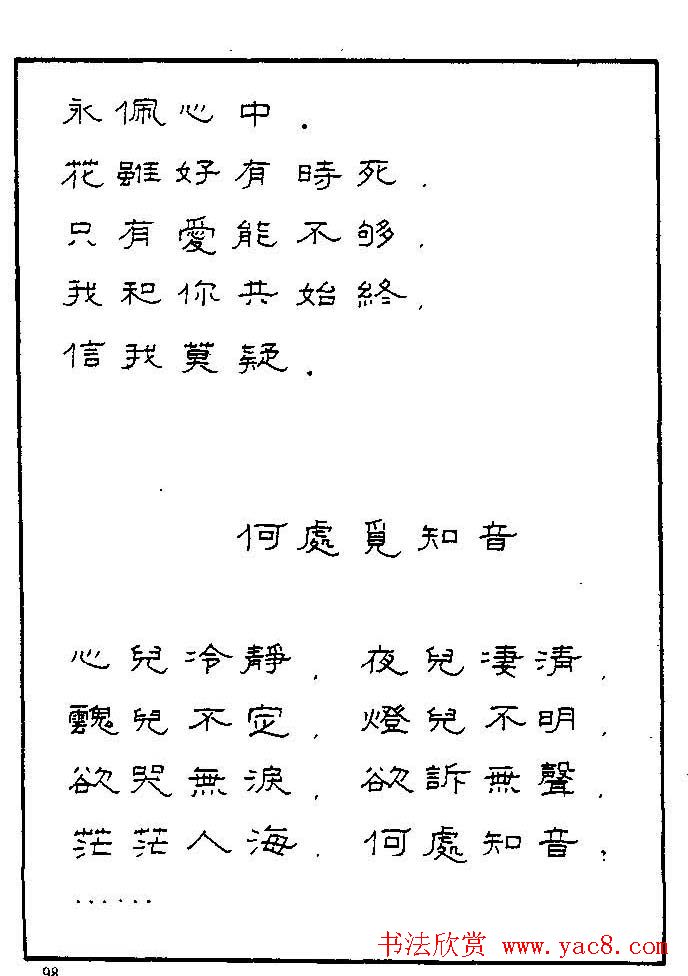 永佩心中．
花雖好有時死，
只有愛能不够，
我和你共始終，
信我莫疑．
何處覓知音
心兒冷靜，夜兒淒清，
魂兒不定，燈兒不明，
欲哭無淚，欲訴無聲，
茫茫人海，何處知音，
……
98
书法欣赏 www.yac8.com